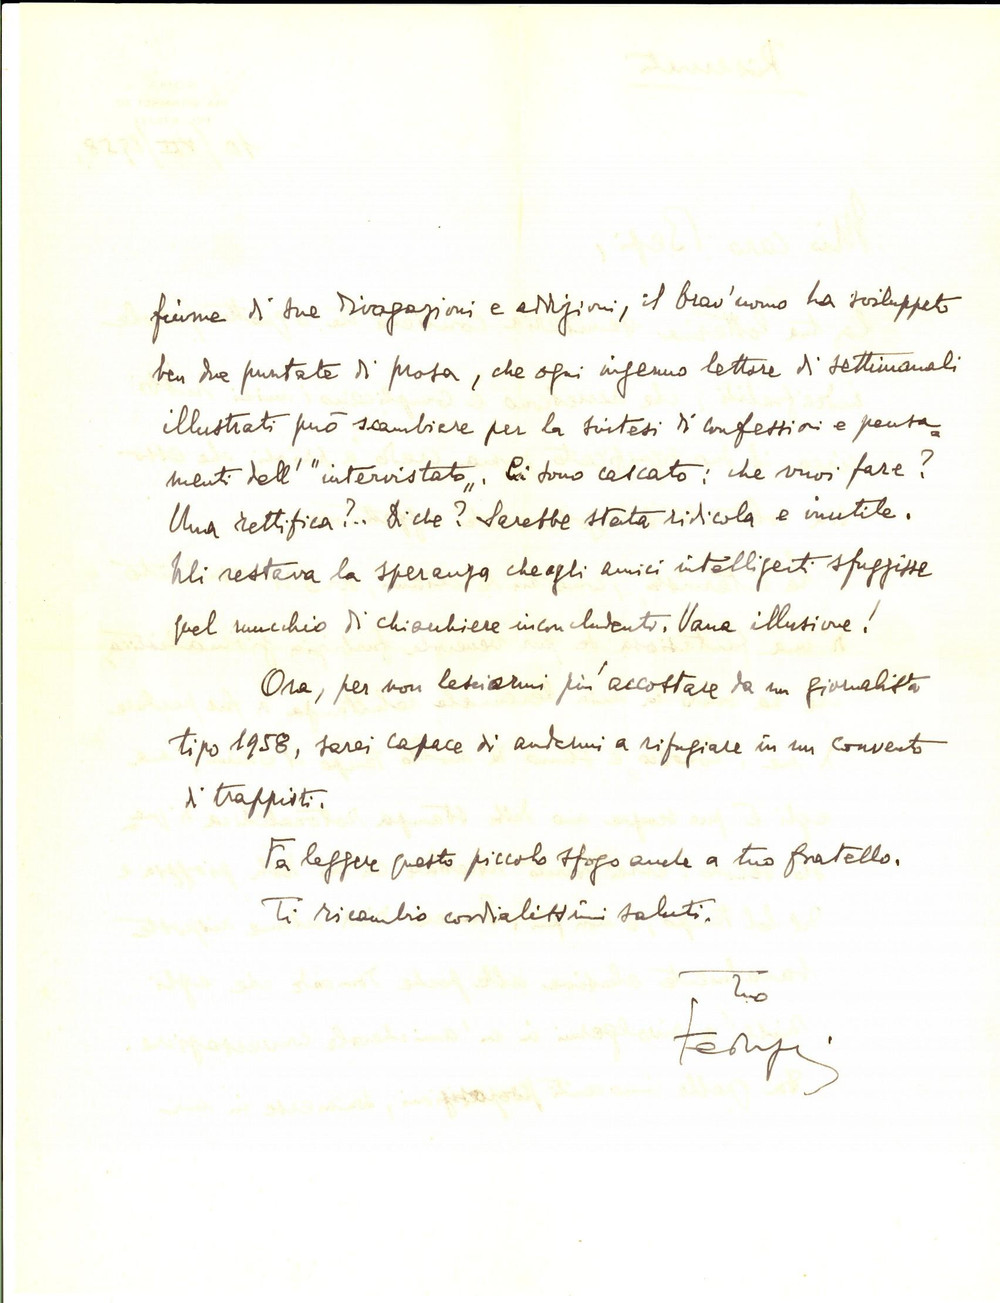 fiume di sue divagazioni e addizioni, il brav'uomo ha sviluppato
ben due puntate di prosa, che ogni ingenuo lettore di settimanali
illustrati può scambiare per la sintesi di confessioni e pensa=
menti dell' "intervistato„. Ci sono cascato: che vuoi fare?
Una rettifica?.. Di che? Sarebbe stata ridicola e inutile.
Mi restava la speranza che agli amici intelligenti sfuggisse
quel mucchio di chiacchiere inconcludenti. Vana illusione!
Ora, per non lasciarmi più accostare da un giornalista
tipo 1958, sarei capace di andarmi a rifugiare in un convento
di trappisti.
Fa leggere questo piccolo sfogo anche a tuo fratello.
Ti ricambio cordialissimi saluti.
Tuo